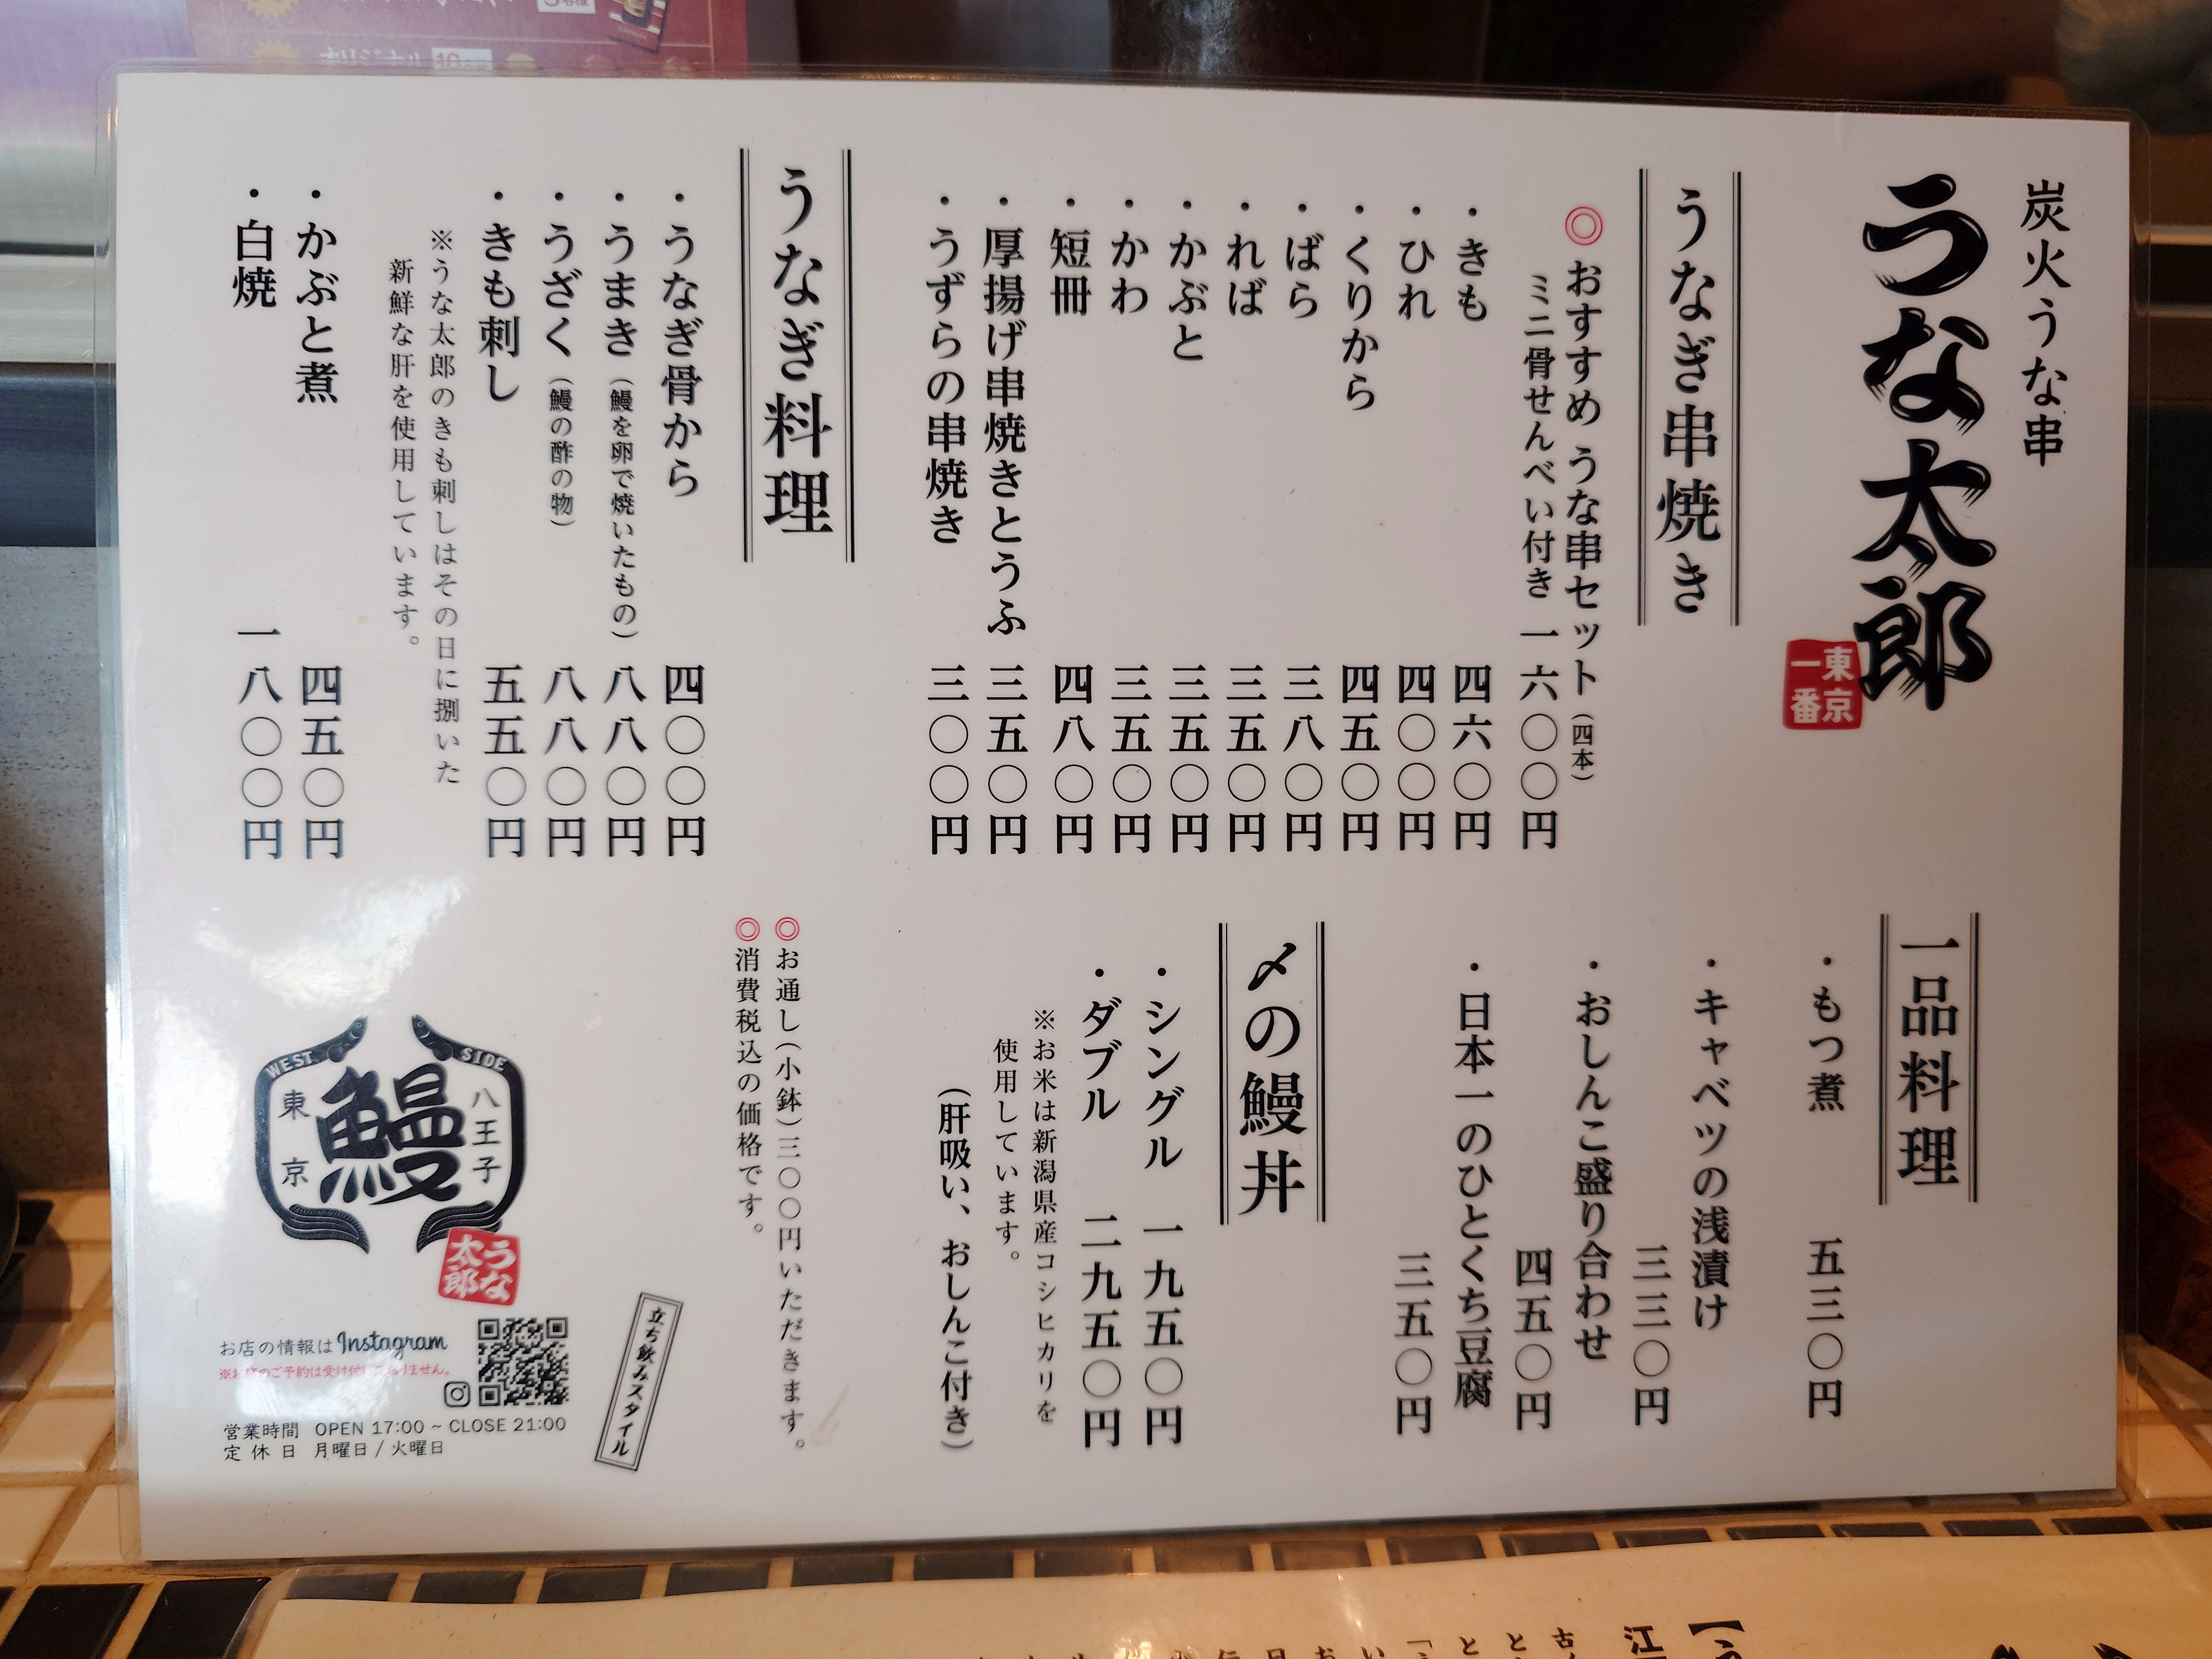 炭火うな串
うな太郎
東京
一番
うなぎ串焼き
◎おすすめ うな串セット（四本）
ミニ骨せんべい付き 一六〇〇円
・きも 四六〇円
・ひれ 四〇〇円
・くりから 四五〇円
・ばら 三八〇円
・れば 三五〇円
・かぶと 三五〇円
・かわ 三五〇円
・短冊 四八〇円
・厚揚げ串焼きとうふ 三五〇円
・うずらの串焼き 三〇〇円
うなぎ料理
・うなぎ骨から 四〇〇円
・うまき（鰻を卵で焼いたもの） 八八〇円
・うざく（鰻の酢の物） 八八〇円
・きも刺し 五五〇円
※うな太郎のきも刺しはその日に捌いた
新鮮な肝を使用しています。
・かぶと煮 四五〇円
・白焼 一八〇〇円
一品料理
・もつ煮 五三〇円
・キャベツの浅漬け
三三〇円
・おしんこ盛り合わせ
四五〇円
・日本一のひとくち豆腐
三五〇円
〆の鰻丼
・シングル 一九五〇円
・ダブル 二九五〇円
※お米は新潟県産コシヒカリを
使用しています。
（肝吸い、おしんこ付き）
◎お通し（小鉢）三〇〇円いただきます。
◎消費税込の価格です。
立ち飲みスタイル
WEST SIDE
八王子
鰻
東京
うな
太郎
お店の情報は Instagram
※お店のご予約は受け付けておりません。
営業時間 OPEN 17:00 ~ CLOSE 21:00
定休日 月曜日 / 火曜日
オリジナル